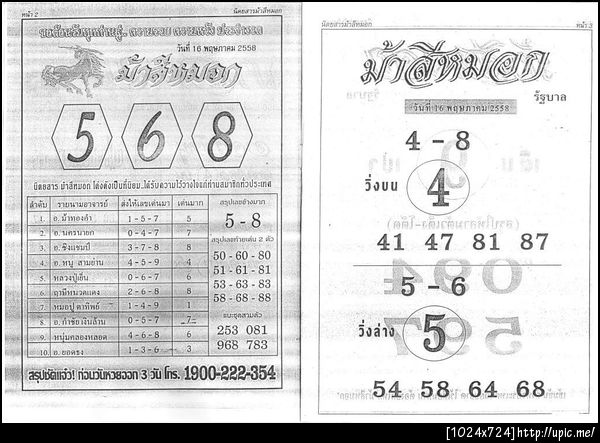 หน้า 2
นิตยสารม้าสีหมอก
วันที่ 16 พฤษภาคม 2558
ม้าสีหมอก
5 6 8
นิตยสาร ม้าสีหมอก โด่งดังเป็นที่นิยม..ได้รับความไว้วางใจแก่ท่านสมาชิกทั่วประเทศ
ลำดับ รายนามอาจารย์ ส่งให้เลขเด่นมา เด่นมาก
1. อ. ม้าทองคำ 1 - 5 - 7 5
2. อ. นครนายก 0 - 4 - 7 7
3. อ. ชิงแชมป์ 3 - 7 - 8 8
4. อ. หนู สามย่าน 4 - 5 - 9 4
5. หลวงปู่เย็น 0 - 6 - 7 6
6. ฤาษีหนวดแดง 2 - 6 - 8 8
7. หมอปู่ตาทิพย์ 1 - 4 - 9 1
8. อ. กำชัยเงินล้าน 0 - 5 - 7 7
9. หนุ่มคลองหลอด 4 - 6 - 8 6
10. อ. ยอดธง 1 - 3 - 6 3
สรุปเลขล่างมาก
5 - 8
สรุปเลขท้ายเด่น 2 ตัว
50 - 60 - 80
51 - 61 - 81
53 - 63 - 83
58 - 68 - 88
แนะชุดสามตัว
253 081
968 783
สรุปชัดแจ๋ว! ก่อนวันหวยออก 3 วัน โทร. 1900-222-354
นิตยสารม้าสีหมอก
หน้า 3
ม้าสีหมอก
รัฐบาล
วันที่ 16 พฤษภาคม 2558
4 - 8
วิ่งบน 4
41 47 81 87
5 - 6
วิ่งล่าง 5
54 58 64 68
[1024x724]http://upic.me/